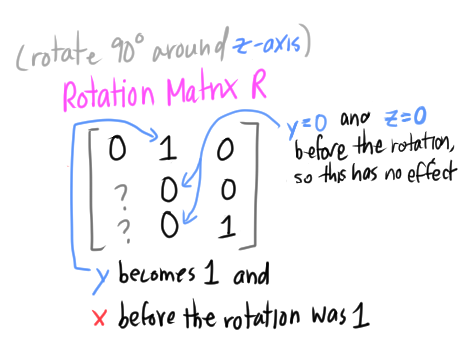 (rotate 90° around z-axis)
Rotation Matrix R
y=0 and z=0
before the rotation,
so this has no effect
0 1 0
? 0 0
? 0 1
y becomes 1 and
x before the rotation was 1